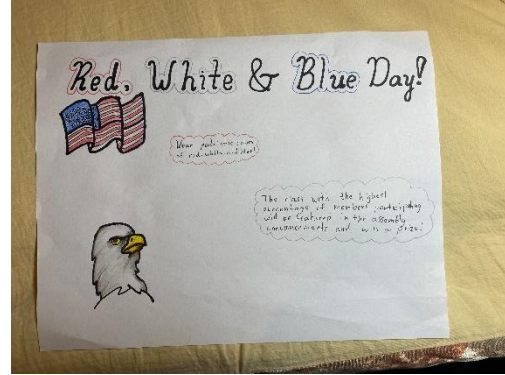 Red, White & Blue Day!
Wear patriotic colors
of red, white, and blue!
The class with the highest
percentage of members participating
will be featured in the assembly
announcements and win a prize!